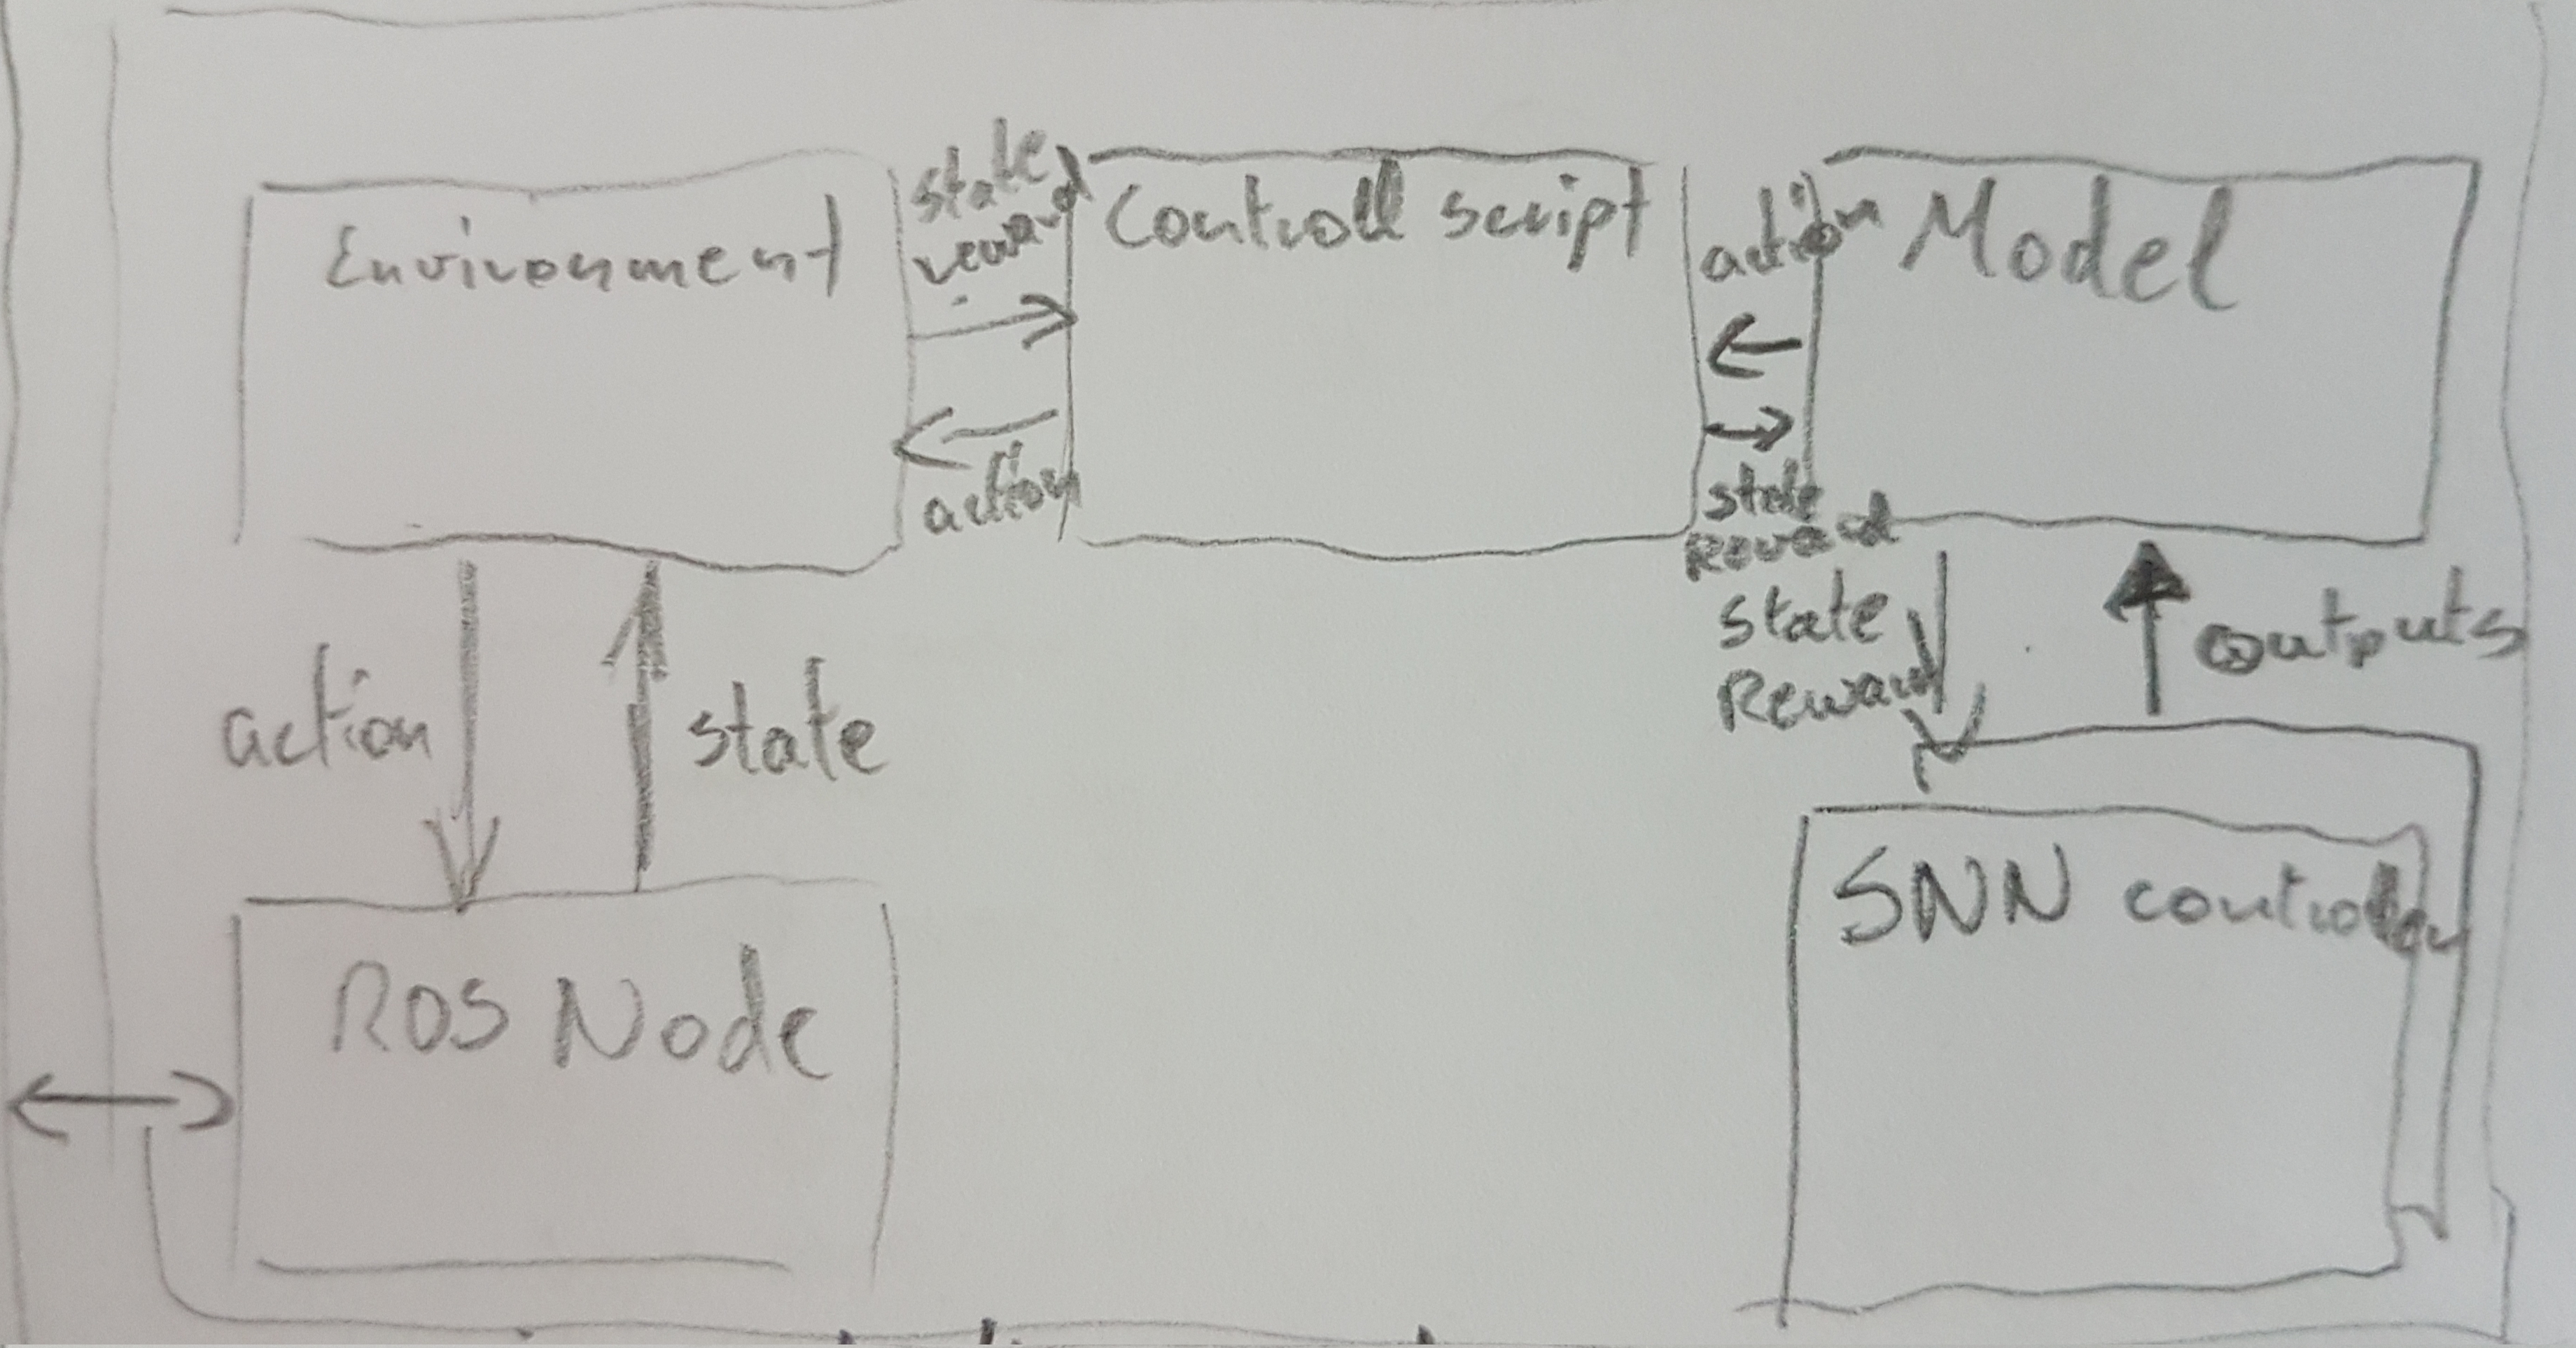 Environment
state,
reward
action
Controll script
action
state
Reward
Model
action
state
state
Reward
outputs
ROS Node
SNN controller